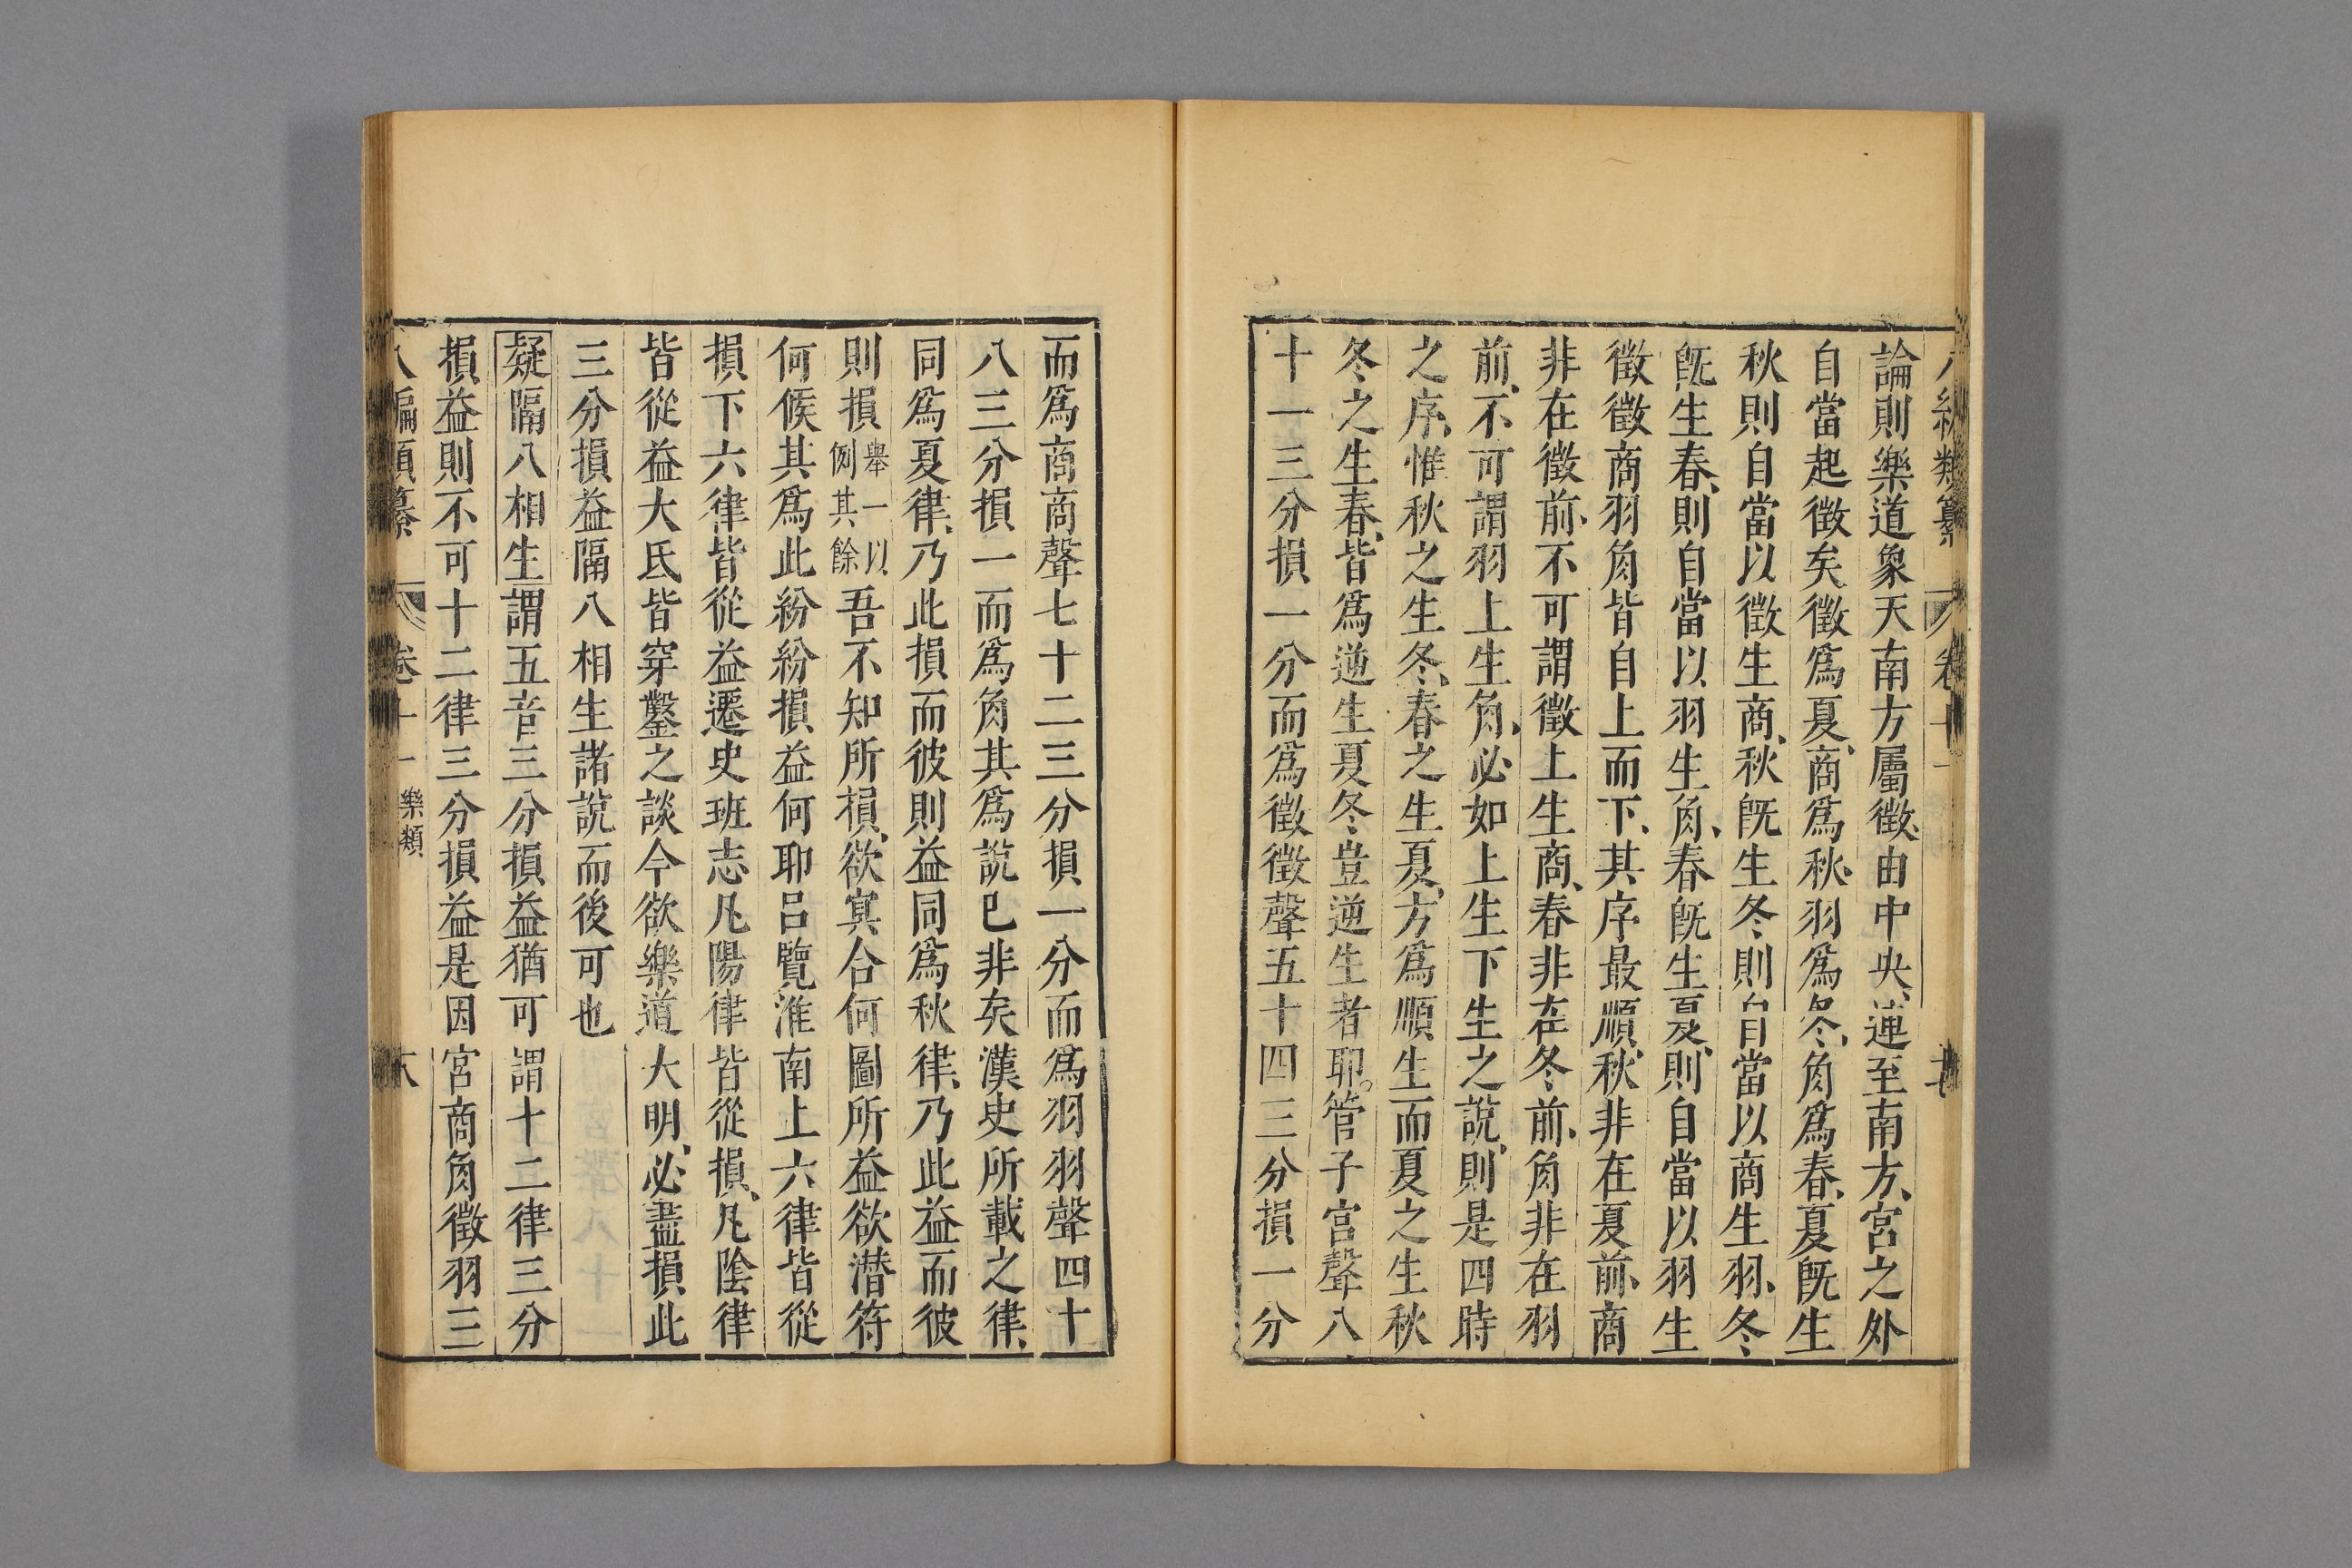 論則樂道象天南方屬徵由中央運至南方宮之外
自當起徵矣徵爲夏商爲秋羽爲冬角爲春夏旣生
秋則自當以徵生商秋旣生冬則自當以商生羽冬
旣生春則自當以羽生角春旣生夏則自當以羽生
徵徵商羽角皆自上而下其序最順秋非在夏前商
非在徵前不可謂徵上生商春非在冬前角非在羽
前不可謂羽上生角必如上生下生之說則是四時
之序惟秋之生冬春之生夏方爲順生而夏之生秋
冬之生春皆爲逆生夏冬豈逆生者耶管子宮聲八
十一三分損一分而爲徵徵聲五十四三分損一分
而爲商商聲七十二三分損一分而爲羽羽聲四十
八三分損一而爲角其爲說已非矣漢史所載之律
同爲夏律乃此損而彼則益同爲秋律乃此益而彼
則損舉一以例其餘吾不知所損欲寘合何圖所益欲潛符
何候其爲此紛紛損益何耶呂覽淮南上六律皆從
損下六律皆從益遷史班志凡陽律皆從損凡陰律
皆從益大氐皆穿鑿之談今欲樂道大明必盡損此
三分損益隔八相生諸說而後可也
疑隔八相生謂五音三分損益猶可謂十二律三分
損益則不可十二律三分損益是因宮商角徵羽三
八編類纂 卷十一 樂類 六